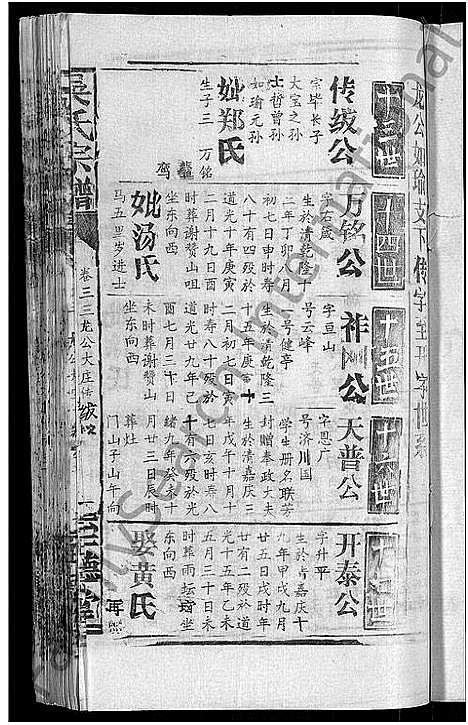 龙公如瑜支下传字至开字世系
十三世
传绂公
宗毕长子
大宝之孙
士哲曾孙
如瑜元孙
妣郑氏
生子三 万铭
十四世
万铭公
字右箴
生於清乾隆十
二年丁卯八月
初七日申时寿
八十有四殁於
道光十年庚寅
二月十九日酉
时葬谢赞山咀
坐东向西
妣汤氏
马五里岁进士
十五世
祚网公
字亘山
号云峰
一号健亭
生於清乾隆三
十五年庚
二月初七日寅
时寿八十殁於
道光廿九年己
酉七月三十日
未时葬谢赞山
坐东向西
十六世
天普公
字恩广
号济川国
学生册名联芳
封赠奉政大夫
生於清嘉庆三
年戊午十月十
七日亥时寿八
十有六殁於光
绪九年癸未十
月廿三日辰时
葬灶
门山子山午向
十七世
开泰公
字升平
生於清嘉庆十
九年甲戌九月
廿五日戌时年
廿有二殁於道
光十五年乙未
五月三十日未
时葬雨坛坐
东向西
娶黄氏
吴氏宗谱
卷三三龙公大庄传绂
一
三德堂